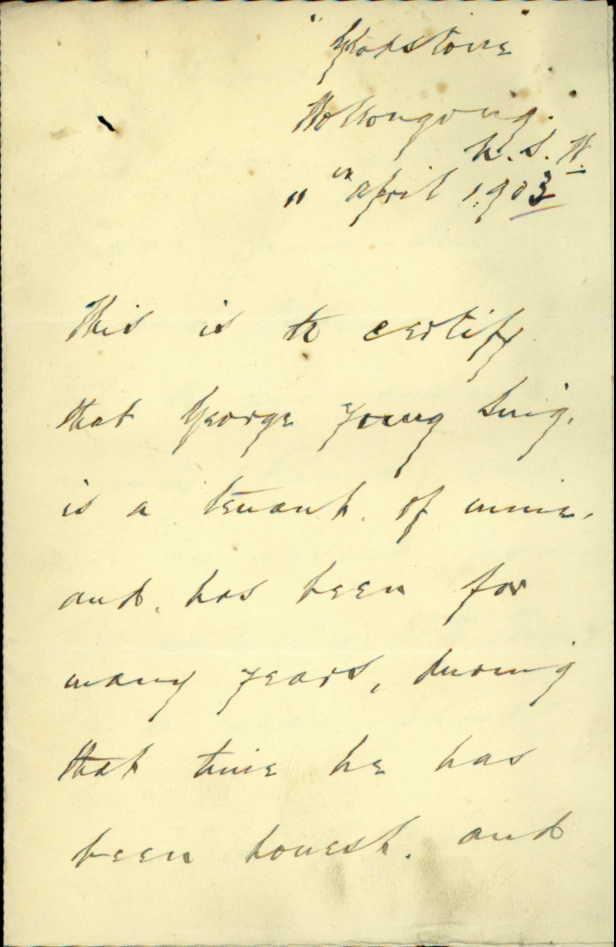 "Gladstone"
Wollongong.
N. S. W.
11th April 1903
This is to certify
that George Young Sing.
is a tenant. of mine.
and. has been for
many years, during
that time he has
been honest. and